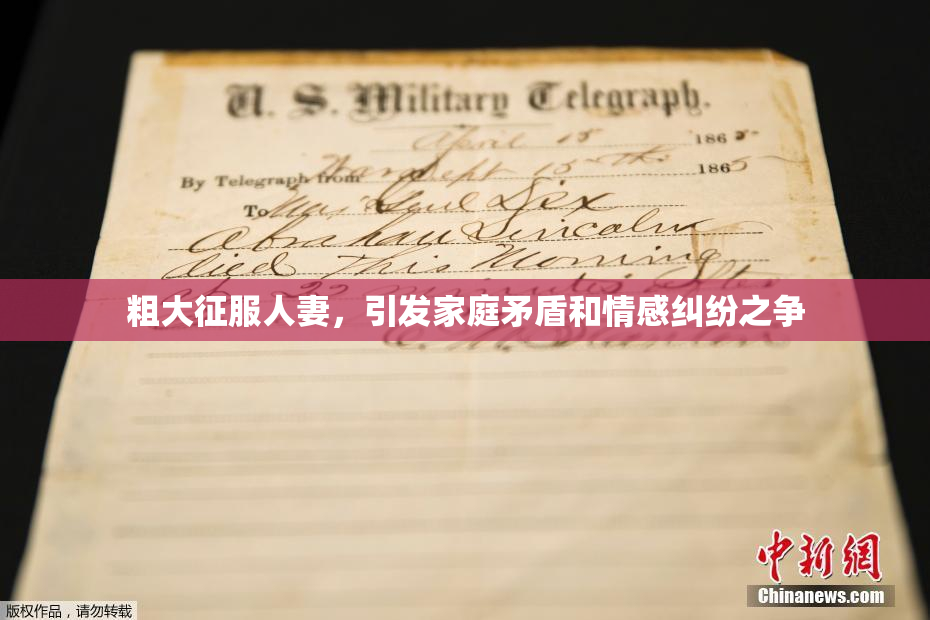 U. S. Military Telegraph.
April 15 1865
By Telegraph from War Dept 15th 1865
To Maj Genl Dix
Abraham Lincoln
died This Morning
at 22 minutes after
粗大征服人妻，引发家庭矛盾和情感纠纷之争
E. M. Stanton
中新网
Chinanews.com
版权作品，请勿转载